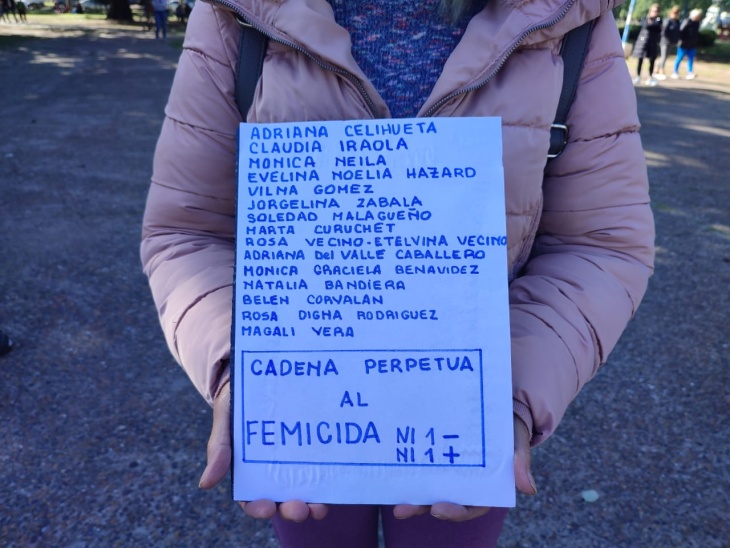 ADRIANA CELIHUETA
CLAUDIA IRAOLA
MONICA NEILA
EVELINA NOELIA HAZARD
VILNA GOMEZ
JORGELINA ZABALA
SOLEDAD MALAGUEÑO
MARTA CURUCHET
ROSA VECINO-ETELVINA VECINO
ADRIANA del VALLE CABALLERO
MONICA GRACIELA BENAVIDEZ
NATALIA BANDIERA
BELEN CORVALAN
ROSA DIGNA RODRIGUEZ
MAGALI VERA
CADENA PERPETUA
AL
FEMICIDA NI 1 -
NI 1 +